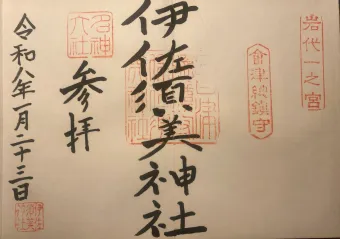 岩代一之宮
會津総鎮守
伊佐須美神社
名神大社
参拝
令和八年一月二十三日